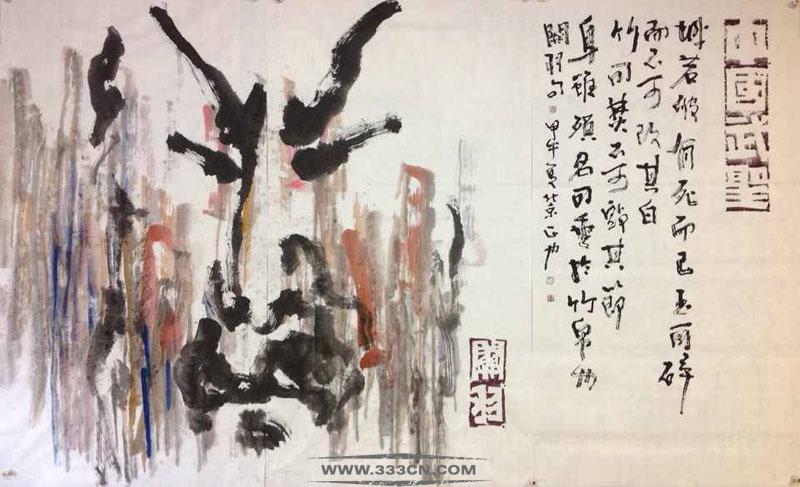 三國武聖
城若破有死而已玉可碎
而不可改其白
竹可焚不可毀其節
身雖殞名可垂於竹帛也
關羽句 甲午夏北京
關羽
WWW.333CN.COM